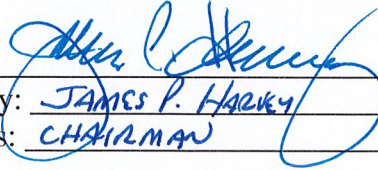 y: JAMES P. HARVEY
s: CHAIRMAN